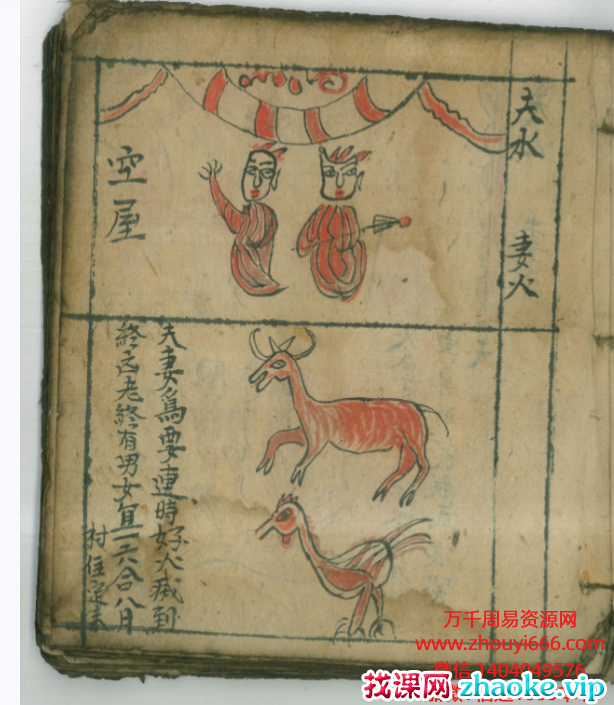 夫水
妻火
空屋
夫妻為要連時好火
到
終
老終有男女
一六合八月
村住定
万千周易资源网
www.zhouyi666.com
微信1404049576
找课网zhaoke.vip